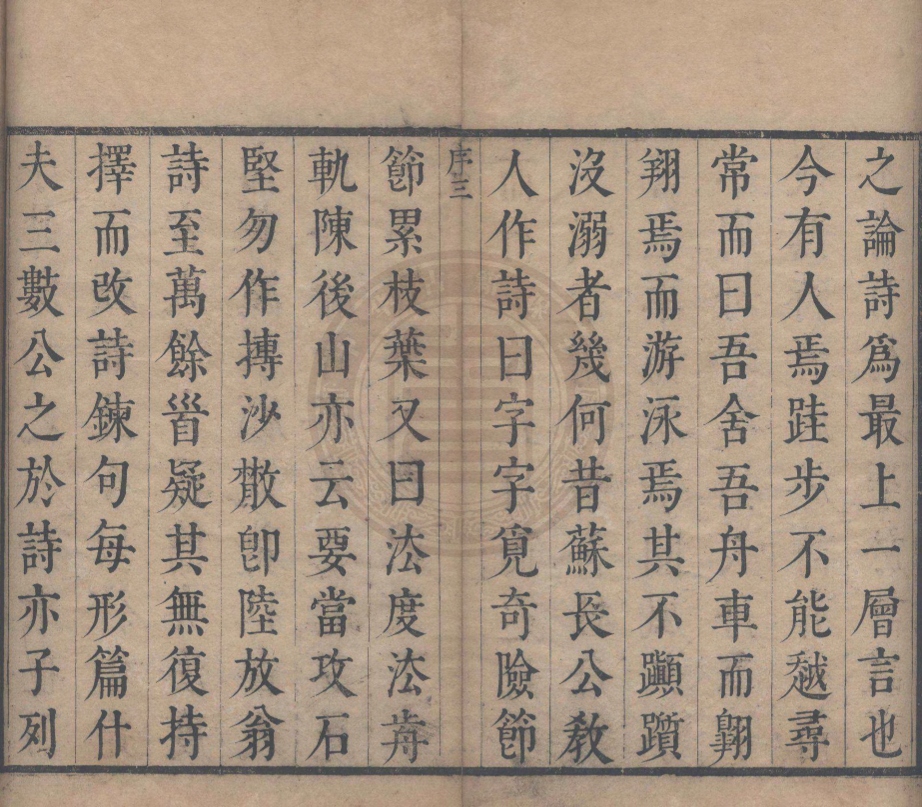 之論詩爲最上一層言也
今有人焉跬步不能越尋
常而曰吾舍吾舟車而翺
翔焉而游泳焉其不躓
沒溺者幾何昔蘇長公教
人作詩曰字字覓奇險節
序三
節累枝葉又曰法度法歬
軌陳後山亦云要當攻石
堅勿作摶沙散卽陸放翁
詩至萬餘首疑其無復持
擇而改詩鍊句每形篇什
夫三數公之於詩亦子列